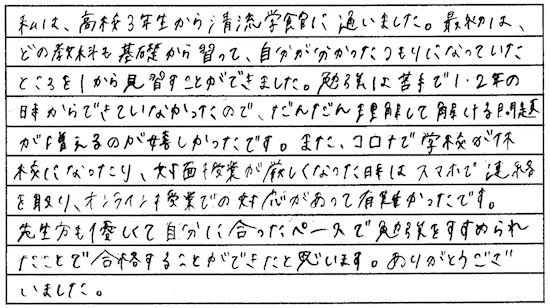 私は、高校3年生から清流学館に通いました。最初は、
どの教科も基礎から習って、自分が分かったつもりになっていた
ところを1から見習すことができました。勉強は苦手で1・2年の
時からできていなかったので、だんだん理解して解ける問題
が増えるのが嬉しかったです。また、コロナで学校が休
校になったり、対面授業が厳しくなった時はスマホで連絡
を取り、オンライン授業での対応があって有難かったです。
先生方も優しくて自分に合ったペースで勉強をすすめられ
たことで合格することができたと思います。ありがとうござ
いました。